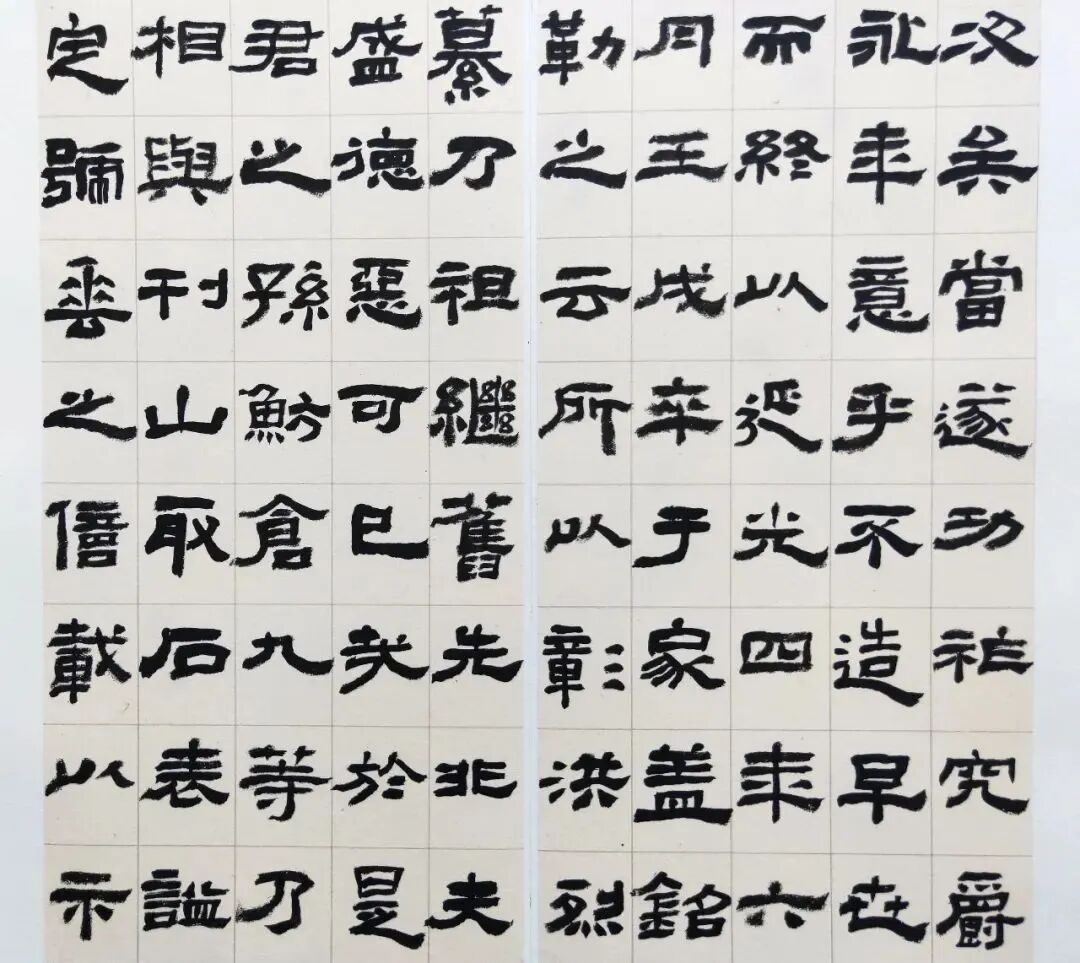 矣當遂功祚究爵
永年意乎不造早世
而終以延光四年六
月壬戌卒于家盖銘
勒之云所以彰洪烈
纂乃祖繼舊先非夫
盛德惡可已哉於是
君之孫魴倉九等乃
相與刊山取石表謚
定號垂之億載以示